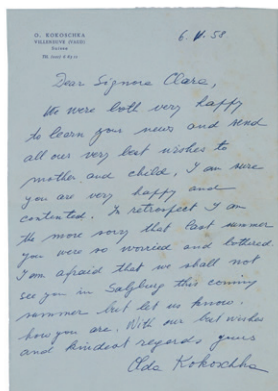 O. KOKOSCHKA
VILLENEUVE (VAUD)
6. V. 58
Dear Signora Clara,
We were both very happy
to learn your news and send
all our very best wishes to
mother and child. I am sure
you are very happy and
contented. In retrospect I am
the more sorry that last summer
you were so worried and bothered
I am afraid that we shall not
see you in Salzburg this coming
summer but let us know
how you are. With our best wishes
and kindest regards yours
Olda Kokoschka